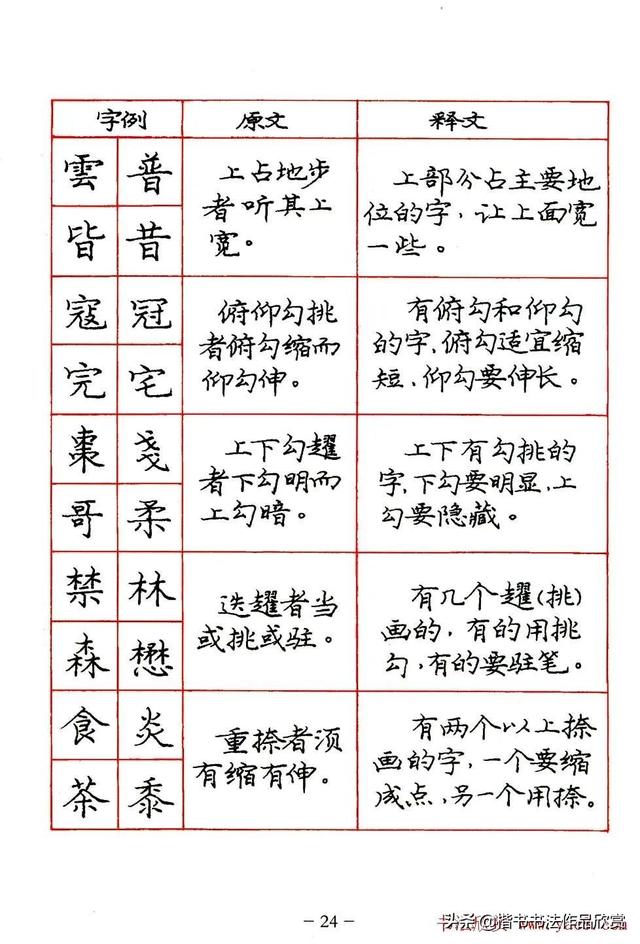 字例 原文 释文
雲 普
皆 昔
上占地步
者听其上
宽。
上部分占主要地
位的字，让上面宽
一些。
寇 冠
完 宅
俯仰勾挑
者俯勾缩而
仰勾伸。
有俯勾和仰勾
的字，俯勾适宜缩
短，仰勾要伸长。
枣 戔
哥 柔
上下勾趯
者下勾明而
上勾暗。
上下有勾挑的
字，下勾要明显，上
勾要隐藏。
禁 林
森 懋
迭趯者当
或挑或驻。
有几个趯(挑)
画的，有的用挑
勾，有的要驻笔。
食 炎
茶 黍
重捺者须
有缩有伸。
有两个以上捺
画的字，一个要缩
成点，另一个用捺。
- 24 -
头条@楷书书法作品欣赏